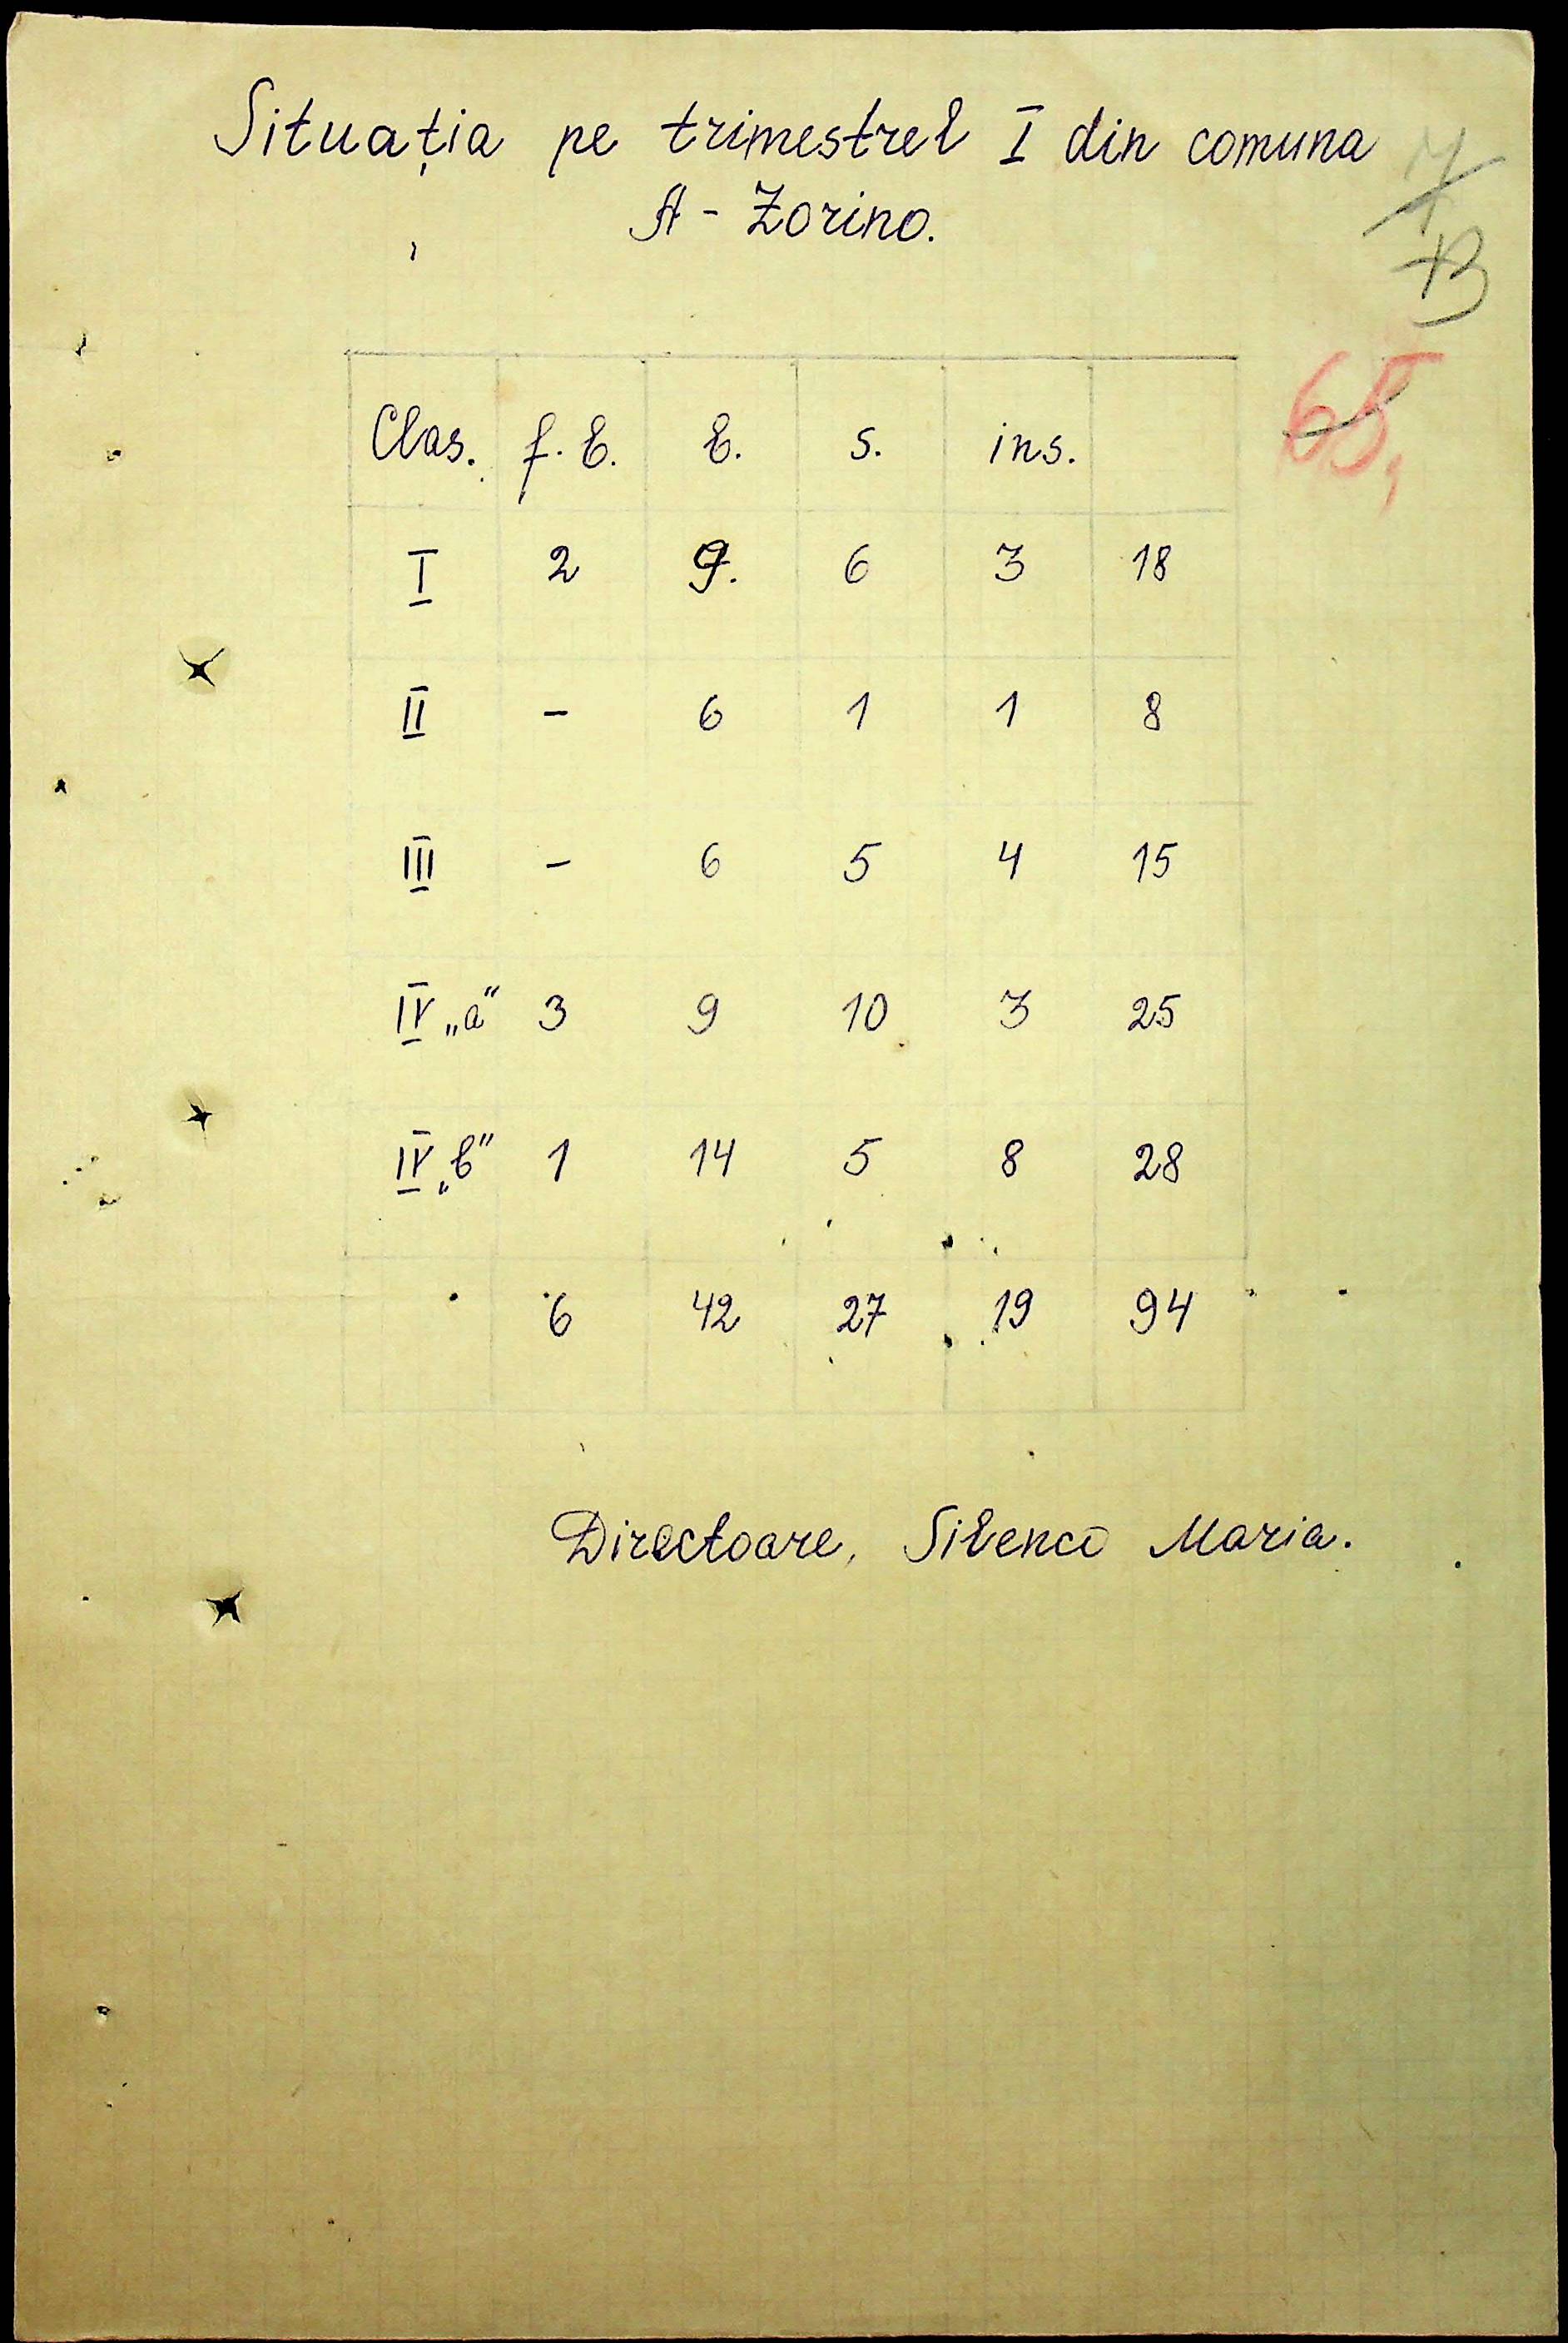 Situația pe trimestrel I din comuna
A - Zorino.
65,
Clas. f. b. b. s. ins.
I 2 7. 6 3 18
II - 6 1 1 8
III - 6 5 4 15
IV „a” 3 9 10 3 25
IV „b” 1 14 5 8 28
6 42 27 19 94
Directoare, Silenco Maria.